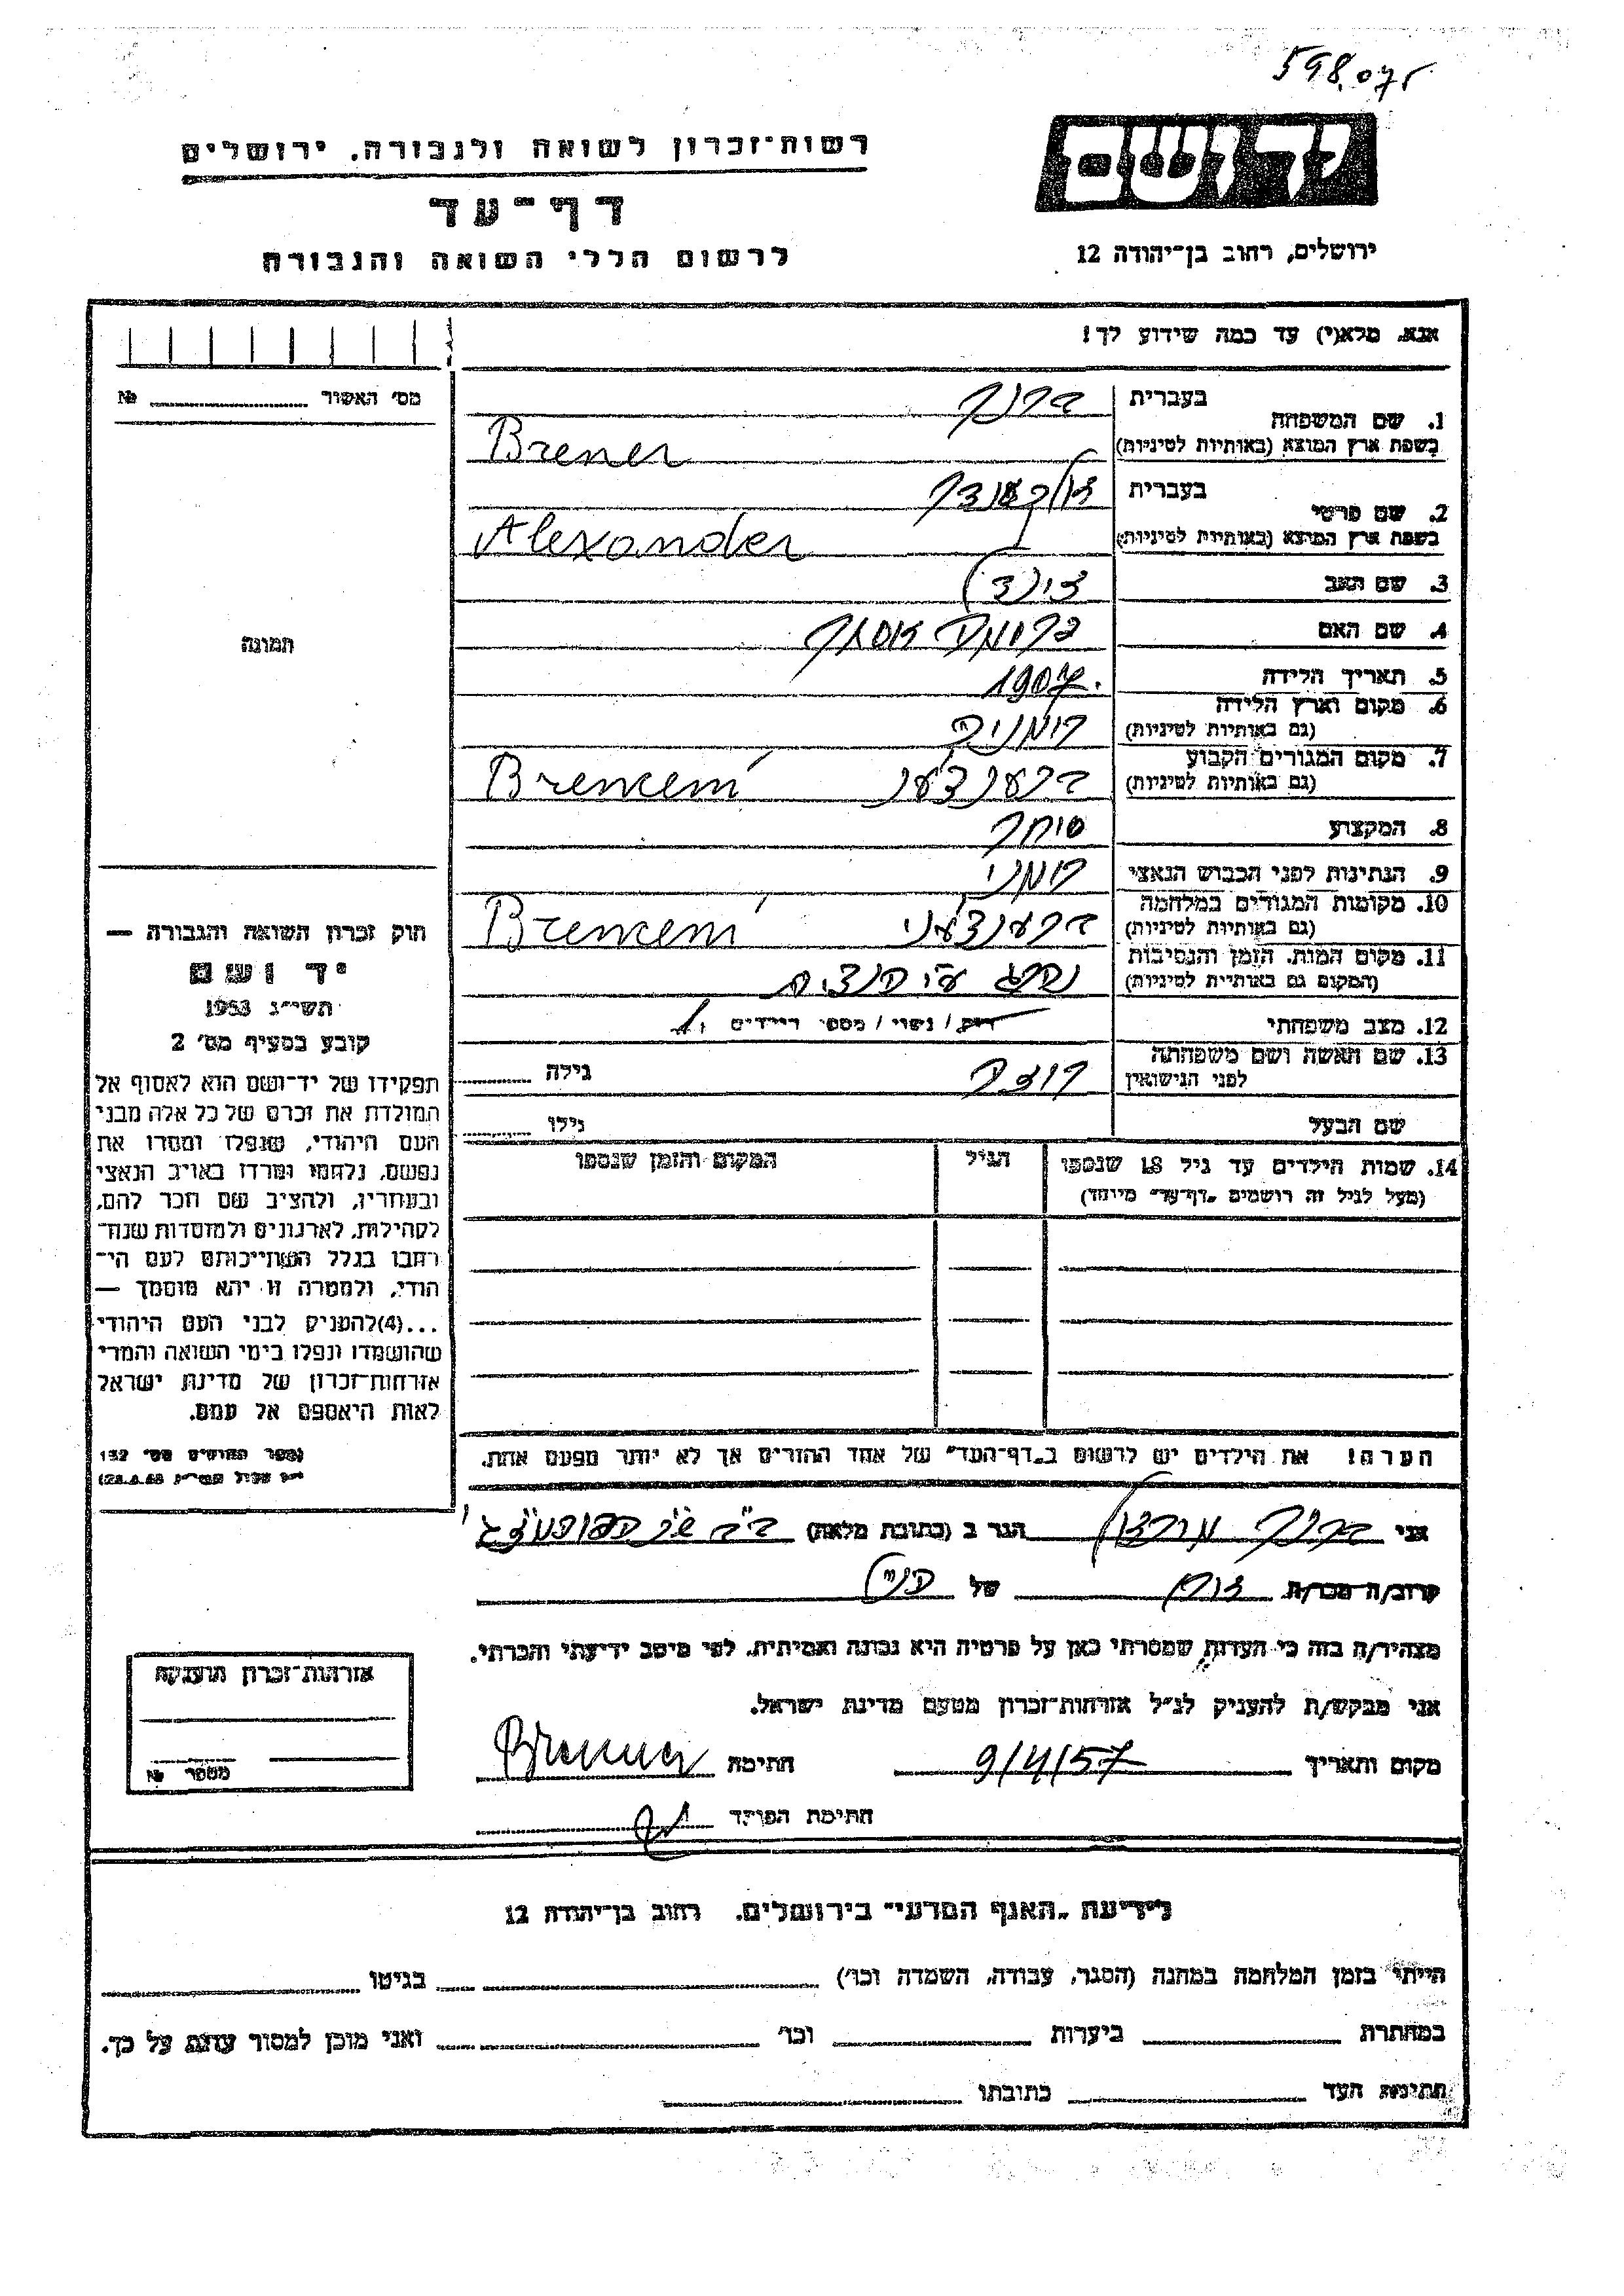 598.075
יד ושם
רשות-זכרון לשואה ולגבורה, ירושלים
דף-עד
לרשום חללי השואה והגבורה
ירושלים, רחוב בן-יהודה 12
אנא, מלא(י) עד כמה שידוע לך!
מס' האשור №
1. שם המשפחה
בעברית ברנר
בשפת ארץ המוצא (באותיות לטיניות) Brener
2. שם פרטי
בעברית אלכסנדר
בשפת ארץ המוצא (באותיות לטיניות) Alexander
3. שם האב
4. שם האם אסתר
תמונה
5. תאריך הלידה 1907.
6. מקום וארץ הלידה
(גם באותיות לטיניות) רומניה
7. מקום המגורים הקבוע
(גם באותיות לטיניות) Brenceni
8. המקצוע סוחר
9. הנתינות לפני הכבוש הנאצי רומני
10. מקומות המגורים במלחמה
(גם באותיות לטיניות) Brenceni
11. מקום המות, הזמן והנסיבות
(המקום גם באותיות לטיניות) נהרג ע"י הנצים
12. מצב משפחתי רוק/נשוי/מספר הילדים
13. שם האשה ושם משפחתה
לפני הנישואין גילה
שם הבעל גילו
14. שמות הילדים עד גיל 18 שנספו הגיל המקום והזמן שנספו
(מעל לגיל זה רושמים "דף-עד" מיוחד)
הערה! את הילדים יש לרשום ב"דף-העד" של אחד ההורים אך לא יותר מפעם אחת.
חוק זכרון השואה והגבורה —
יד ושם
תשי"ג 1953
קובע בסעיף מס' 2
תפקידו של יד-ושם הוא לאסוף אל
המולדת את זכרם של כל אלה מבני
העם היהודי, שנפלו ומסרו את
נפשם, נלחמו ומרדו באויב הנאצי
ובעוזריו, ולהציב שם וזכר להם,
לקהילות, לארגונים ולמוסדות שנח-
רבו בגלל השתייכותם לעם הי-
הודי, ולמטרה זו יהא מוסמך —
...(4)להעניק לבני העם היהודי
שהושמדו ונפלו בימי השואה והמרי
אזרחות-זכרון של מדינת ישראל
לאות היאספם אל עמם.
(ספר החוקים מס' 132
אני ברנר הגר ב (כתובת מלאה)
קרוב/ה מכר/ת של הנ"ל
מצהיר/ה בזה כי העדות שמסרתי כאן על פרטיה היא נכונה ואמיתית, לפי מיטב ידיעתי והכרתי.
אני מבקש/ת להעניק לנ"ל אזרחות-זכרון מטעם מדינת ישראל.
מקום ותאריך 9/4/57 חתימה Brenner
חתימת הפוקד
אזרחות-זכרון הוענקה
מספר №
לידיעת "האגף המדעי" בירושלים, רחוב בן-יהודה 12
הייתי בזמן המלחמה במחנה (הסגר, עבודה, השמדה וכו') בגיטו
במחתרת ביערות וכו' ואני מוכן למסור עדות על כך.
חתימת העד כתובתו